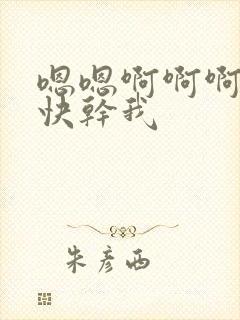 嗯嗯啊啊啊
快幹我
朱彦西